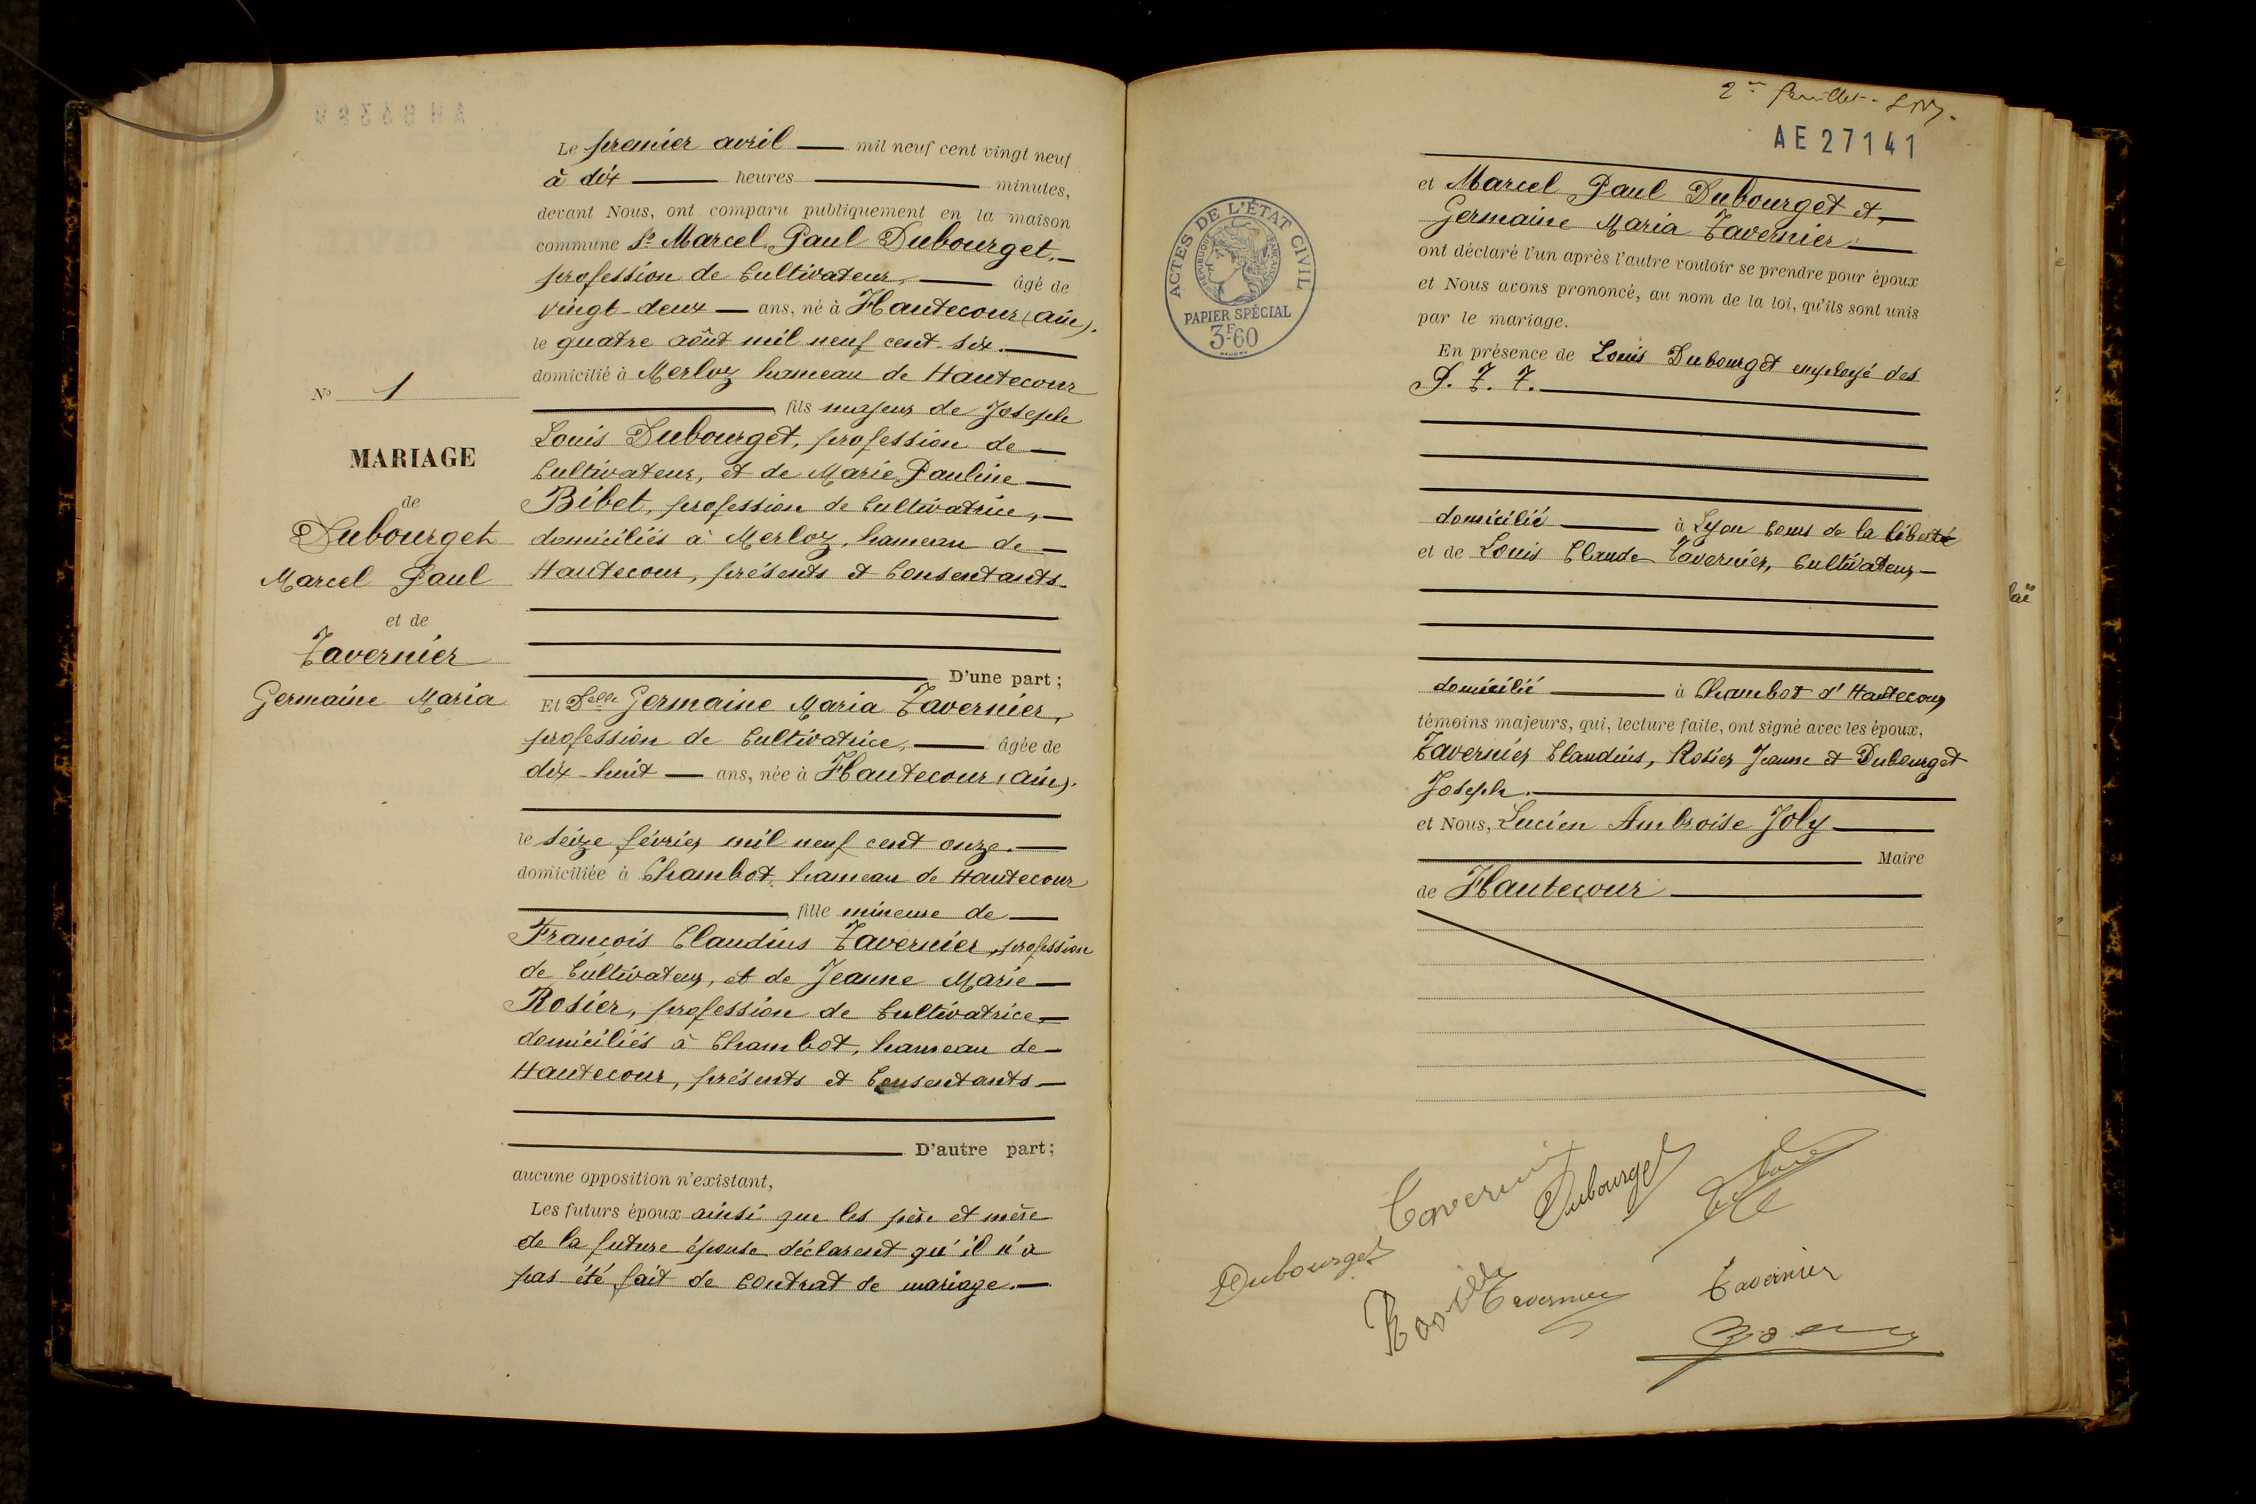 Le premier avril mil neuf cent vingt neuf
à dix heures minutes,
devant Nous, ont comparu publiquement en la maison
commune Sr Marcel Paul Dubourget,
profession de Cultivateur, âgé de
vingt-deux ans, né à Hautecour (Ain).
le quatre août mil neuf cent six.
domicilié à Merloz hameau de Hautecour
fils majeur de Joseph
Louis Dubourget, profession de
Cultivateur, et de Marie Pauline
Bibet, profession de Cultivatrice,
domiciliés à Merloz, hameau de
Hautecour, présents et Consentants
D'une part;
Et Delle Germaine Maria Tavernier,
profession de Cultivatrice, âgée de
dix-huit ans, née à Hautecour (Ain).
le seize février mil neuf cent onze.
domiciliée à Chambot, hameau de Hautecour
fille mineure de
François Claudius Tavernier, profession
de Cultivateur, et de Jeanne Marie
Rosier, profession de Cultivatrice,
domiciliés à Chambot, hameau de
Hautecour, présents et Consentants
D'autre part;
aucune opposition n'existant,
Les futurs époux ainsi que les père et mère
de la future épouse déclarent qu'il n'a
pas été fait de Contrat de mariage.
No 1
MARIAGE
de
Dubourget
Marcel Paul
et de
Tavernier
Germaine Maria
2me feuillet.
AE 27141
ACTES DE L'ÉTAT CIVIL
RÉPUBLIQUE FRANÇAISE
PAPIER SPÉCIAL
3F60
et Marcel Paul Dubourget et,
Germaine Maria Tavernier
ont déclaré l'un après l'autre vouloir se prendre pour époux
et Nous avons prononcé, au nom de la loi, qu'ils sont unis
par le mariage.
En présence de Louis Dubourget employé des
P. T. T.
domicilié à Lyon Cours de la liberté
et de Louis Claude Tavernier, Cultivateur
domicilié à Chambot d'Hautecour
témoins majeurs, qui, lecture faite, ont signé avec les époux,
Tavernier Claudius, Rosier Jeanne et Dubourget
Joseph.
et Nous, Lucien Ambroise Joly
Maire
de Hautecour
Tavernier
Dubourget
Dubourget
Tavernier
Tavernier